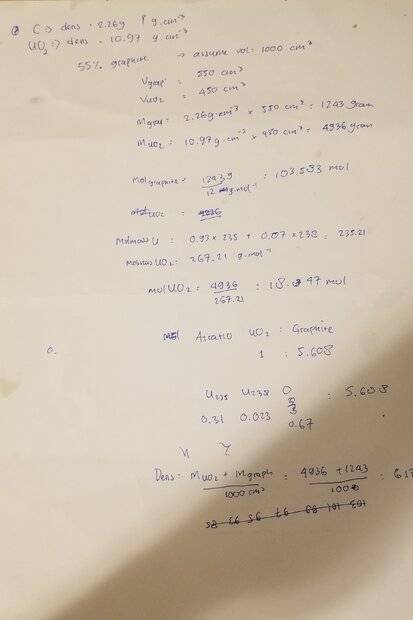 C => dens = 2.26g g.cm⁻³
UO₂ => dens = 10.97 g.cm⁻³
55% graphite → assume vol: 1000 cm³
Vgrap = 550 cm³
VUO₂ = 450 cm³
Mgraf = 2.26g.cm⁻³ × 550 cm³ = 1243 gram
MUO₂ = 10.97 g.cm⁻³ × 450 cm³ = 4936 gram
Molgraphite = 1243g / 12 g.mol⁻¹ = 103.583 mol
UO₂ = 4936
Molmass U = 0.93 × 235 + 0.07 × 238 = 235.21
Molmass UO₂ = 267.21 g.mol⁻¹
mol UO₂ = 4936 / 267.21 = 18.47 mol
UO₂ : Graphite
0. 1 : 5.608
U235 U238 O : 5.608
0.31 0.023 0.67
Dens = MUO₂ + Mgraph / 1000 cm³ = 4936 + 1243 / 1000 =
103 101 97 95 93